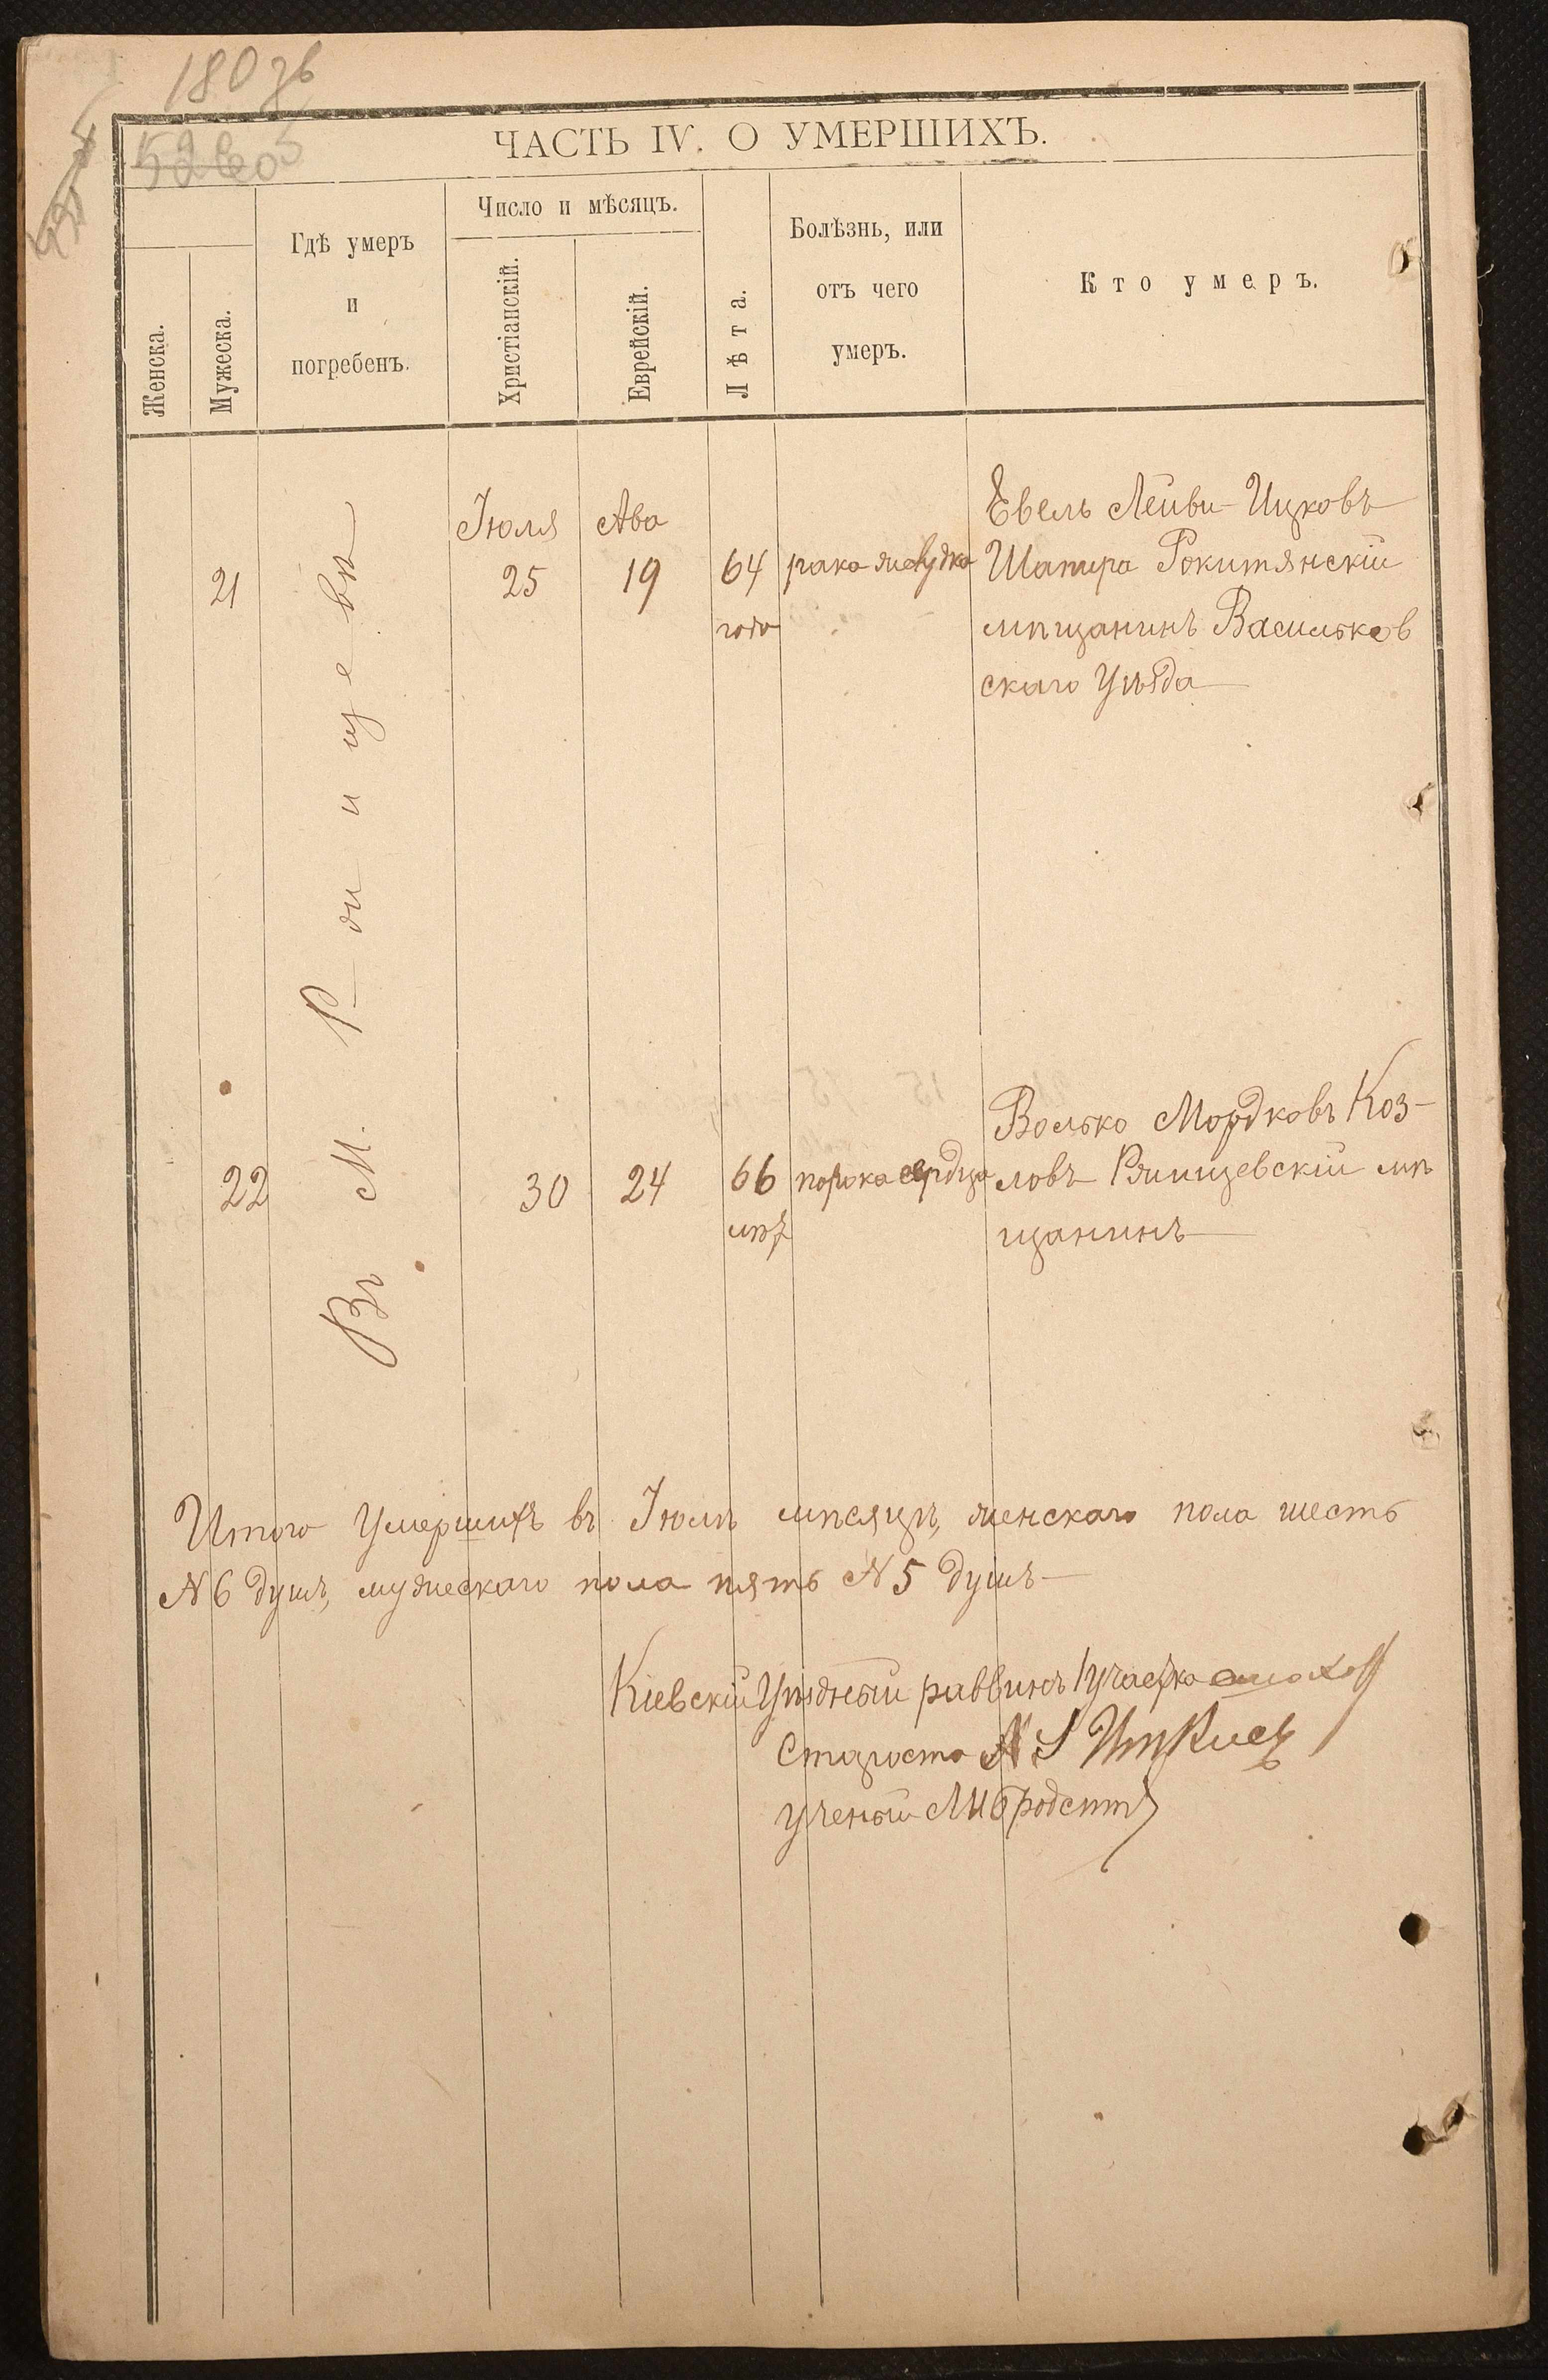 180 зв
ЧАСТЬ IV. О УМЕРШИХЪ.
Женска.
Мужеска.
Гдѣ умеръ
и
погребенъ.
Число и мѣсяцъ.
Христіанскій.
Еврейскій.
Лѣта.
Болѣзнь, или
отъ чего
умеръ.
Кто умеръ.
Въ М. Ржищевѣ
Іюля Ава
21 25 19 64 рака желудка
года
Евель Лейви-Ицковъ
Шапира Рокитянскій
мѣщанинъ Васильков
скаго Уѣзда
22 30 24 66 порока сердца
лѣт
Волько Мордковъ Коз-
ловъ Ржищевскій мѣ
щанинъ
Итого Умершихъ въ Іюлѣ мѣсяцѣ, женскаго пола шесть
N 6 душъ, мужескаго пола пять N 5 душъ
Кіевскій Уѣздный раввинъ 1 участка
Староста
ученый